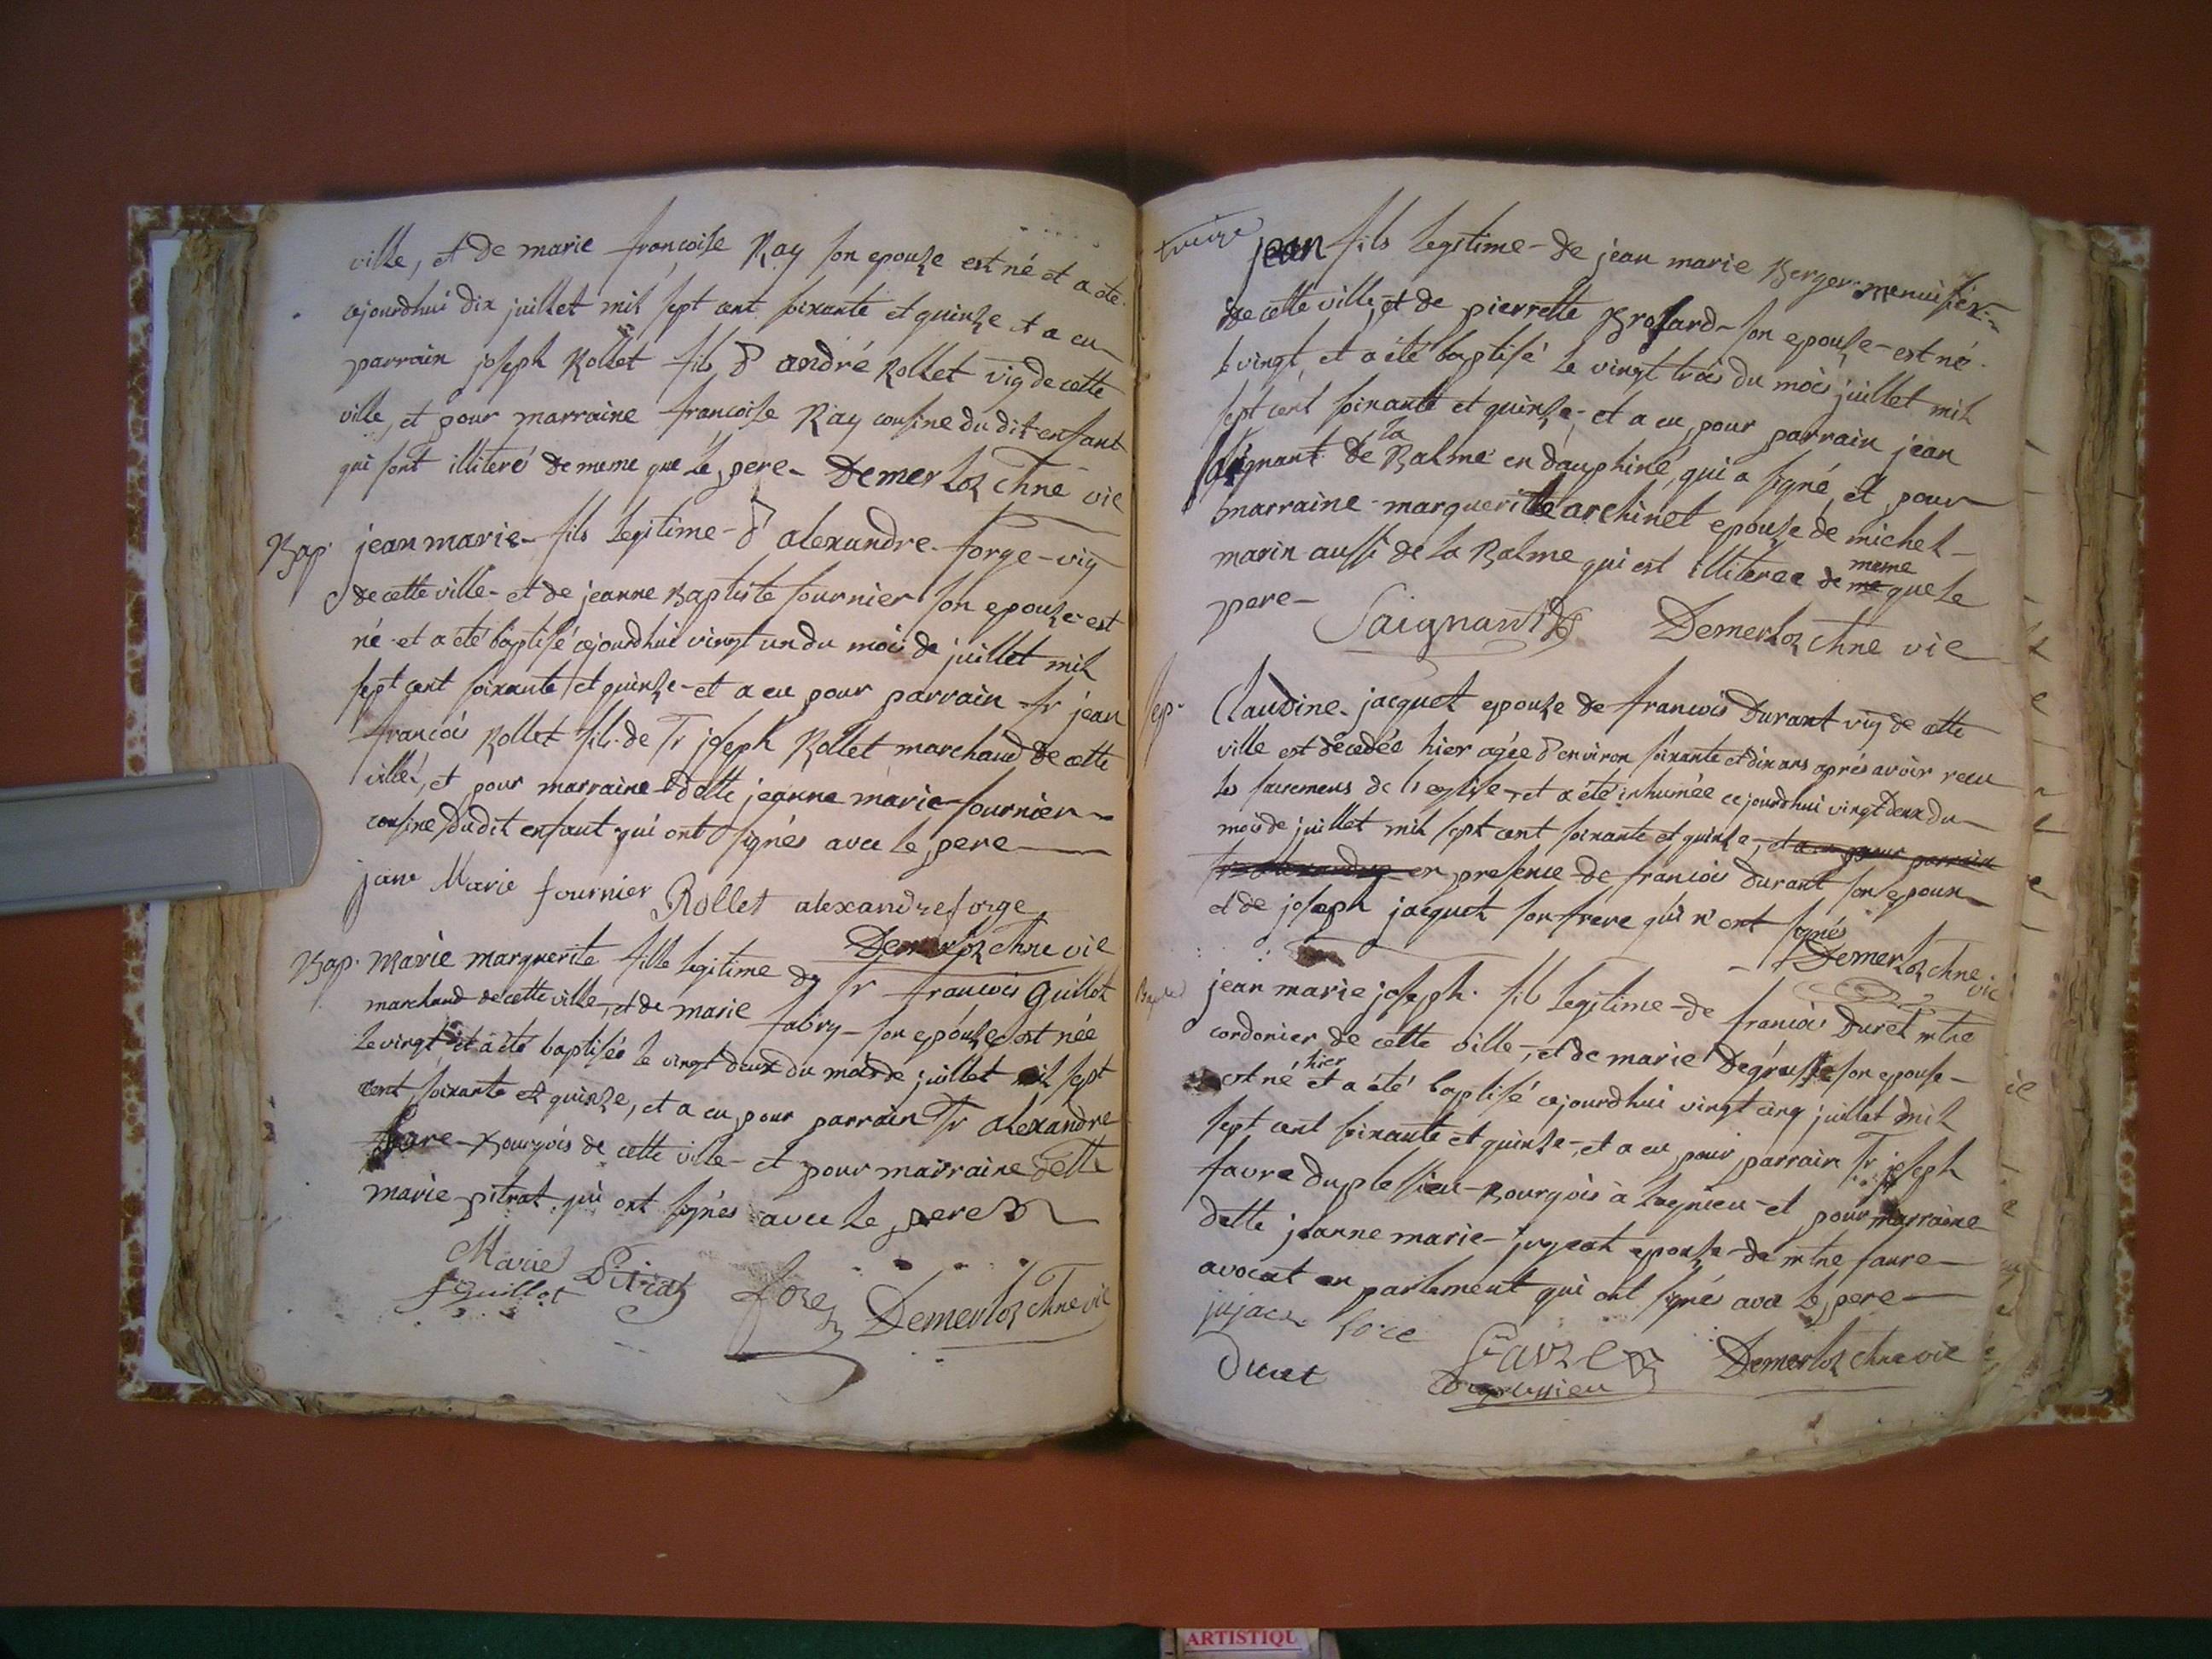 ville, et de marie francoise Ray son epouze est né et a été
cejourdhui dix juillet mil sept cent soixante et quinze et a eu
parrain joseph Rollet fils d'andré Rollet vig de cette
ville, et pour marraine francoise Ray cousine dudit enfant
qui sont illiteré de meme que le pere - Demerloz chne vic
Bap. jean marie - fils legitime - d'alexandre forge - vig
de cette ville - et de jeanne Baptiste fournier son epouze est
né - et a été baptisé cejourdhui vingt un du mois de juillet mil
sept cent soixante et quinze - et a eu pour parrain - sr jean
francois Rollet fils de Sr joseph Rollet marchand de cette
ville, et pour marraine delle jeanne marie fournier
cousine dudit enfant qui ont signés avec le pere
jane Marie fournier Rollet alexandre forge
Demerloz chne vic
Bap. Marie marguerite fille legitime de Sr francois Guillot
marchand de cette ville, et de marie fabry - son epouze est née
le vingt et a été baptisée le vingt deux du mois de juillet mil sept
cent soixante et quinze, et a eu pour parrain Sr alexandre
fare - Bourgois de cette ville - et pour marraine delle
marie pitrat qui ont signés avec le pere
Marie Pitrat
f Guillot Demerloz chne vic
jean fils legitime - de jean marie Berger menuisier
de cette ville, et de pierrette Brossard - son epouse - est né
le vingt, et a été baptisé le vingt trois du mois juillet mil
sept cent soixante et quinze - et a eu pour parrain jean
saignant de la Balme en dauphiné, qui a signé, et pour
marraine - margueritte archinet epouse de michel
marin aussi de la Balme qui est illiteree de me meme que le
pere -
Saignant Demerloz chne vic
Sep. Claudine jacquet epouze de francois Durant vig de cette
ville est décedée hier agée d'environ soixante et dix ans aprés avoir recu
les sacremens de l'eglise, et a été inhumée cejourdhui vingt deux du
mois de juillet mil sept cent soixante et quinze, et a eu pour parrain
sr alexandre en presence de francois durant son epoux
et de joseph jacquet son frere qui n'ont signés
Demerloz chne vic
jean marie joseph fils legitime - de francois Duret mtre
cordonier de cette ville, et de marie Degrusse son epouse
est né hier et a été baptisé cejourdhui vingt cinq juillet mil
sept cent soixante et quinze, et a eu pour parrain Sr joseph
favre duplessieu - Bourgois à lagnieu - et pour marraine
delle jeanne marie - jugeat epouze de mtre faure
avocat en parlement qui ont signés avec le pere
Duret favre Demerloz chne vic
duplessieu
ARTISTIQU